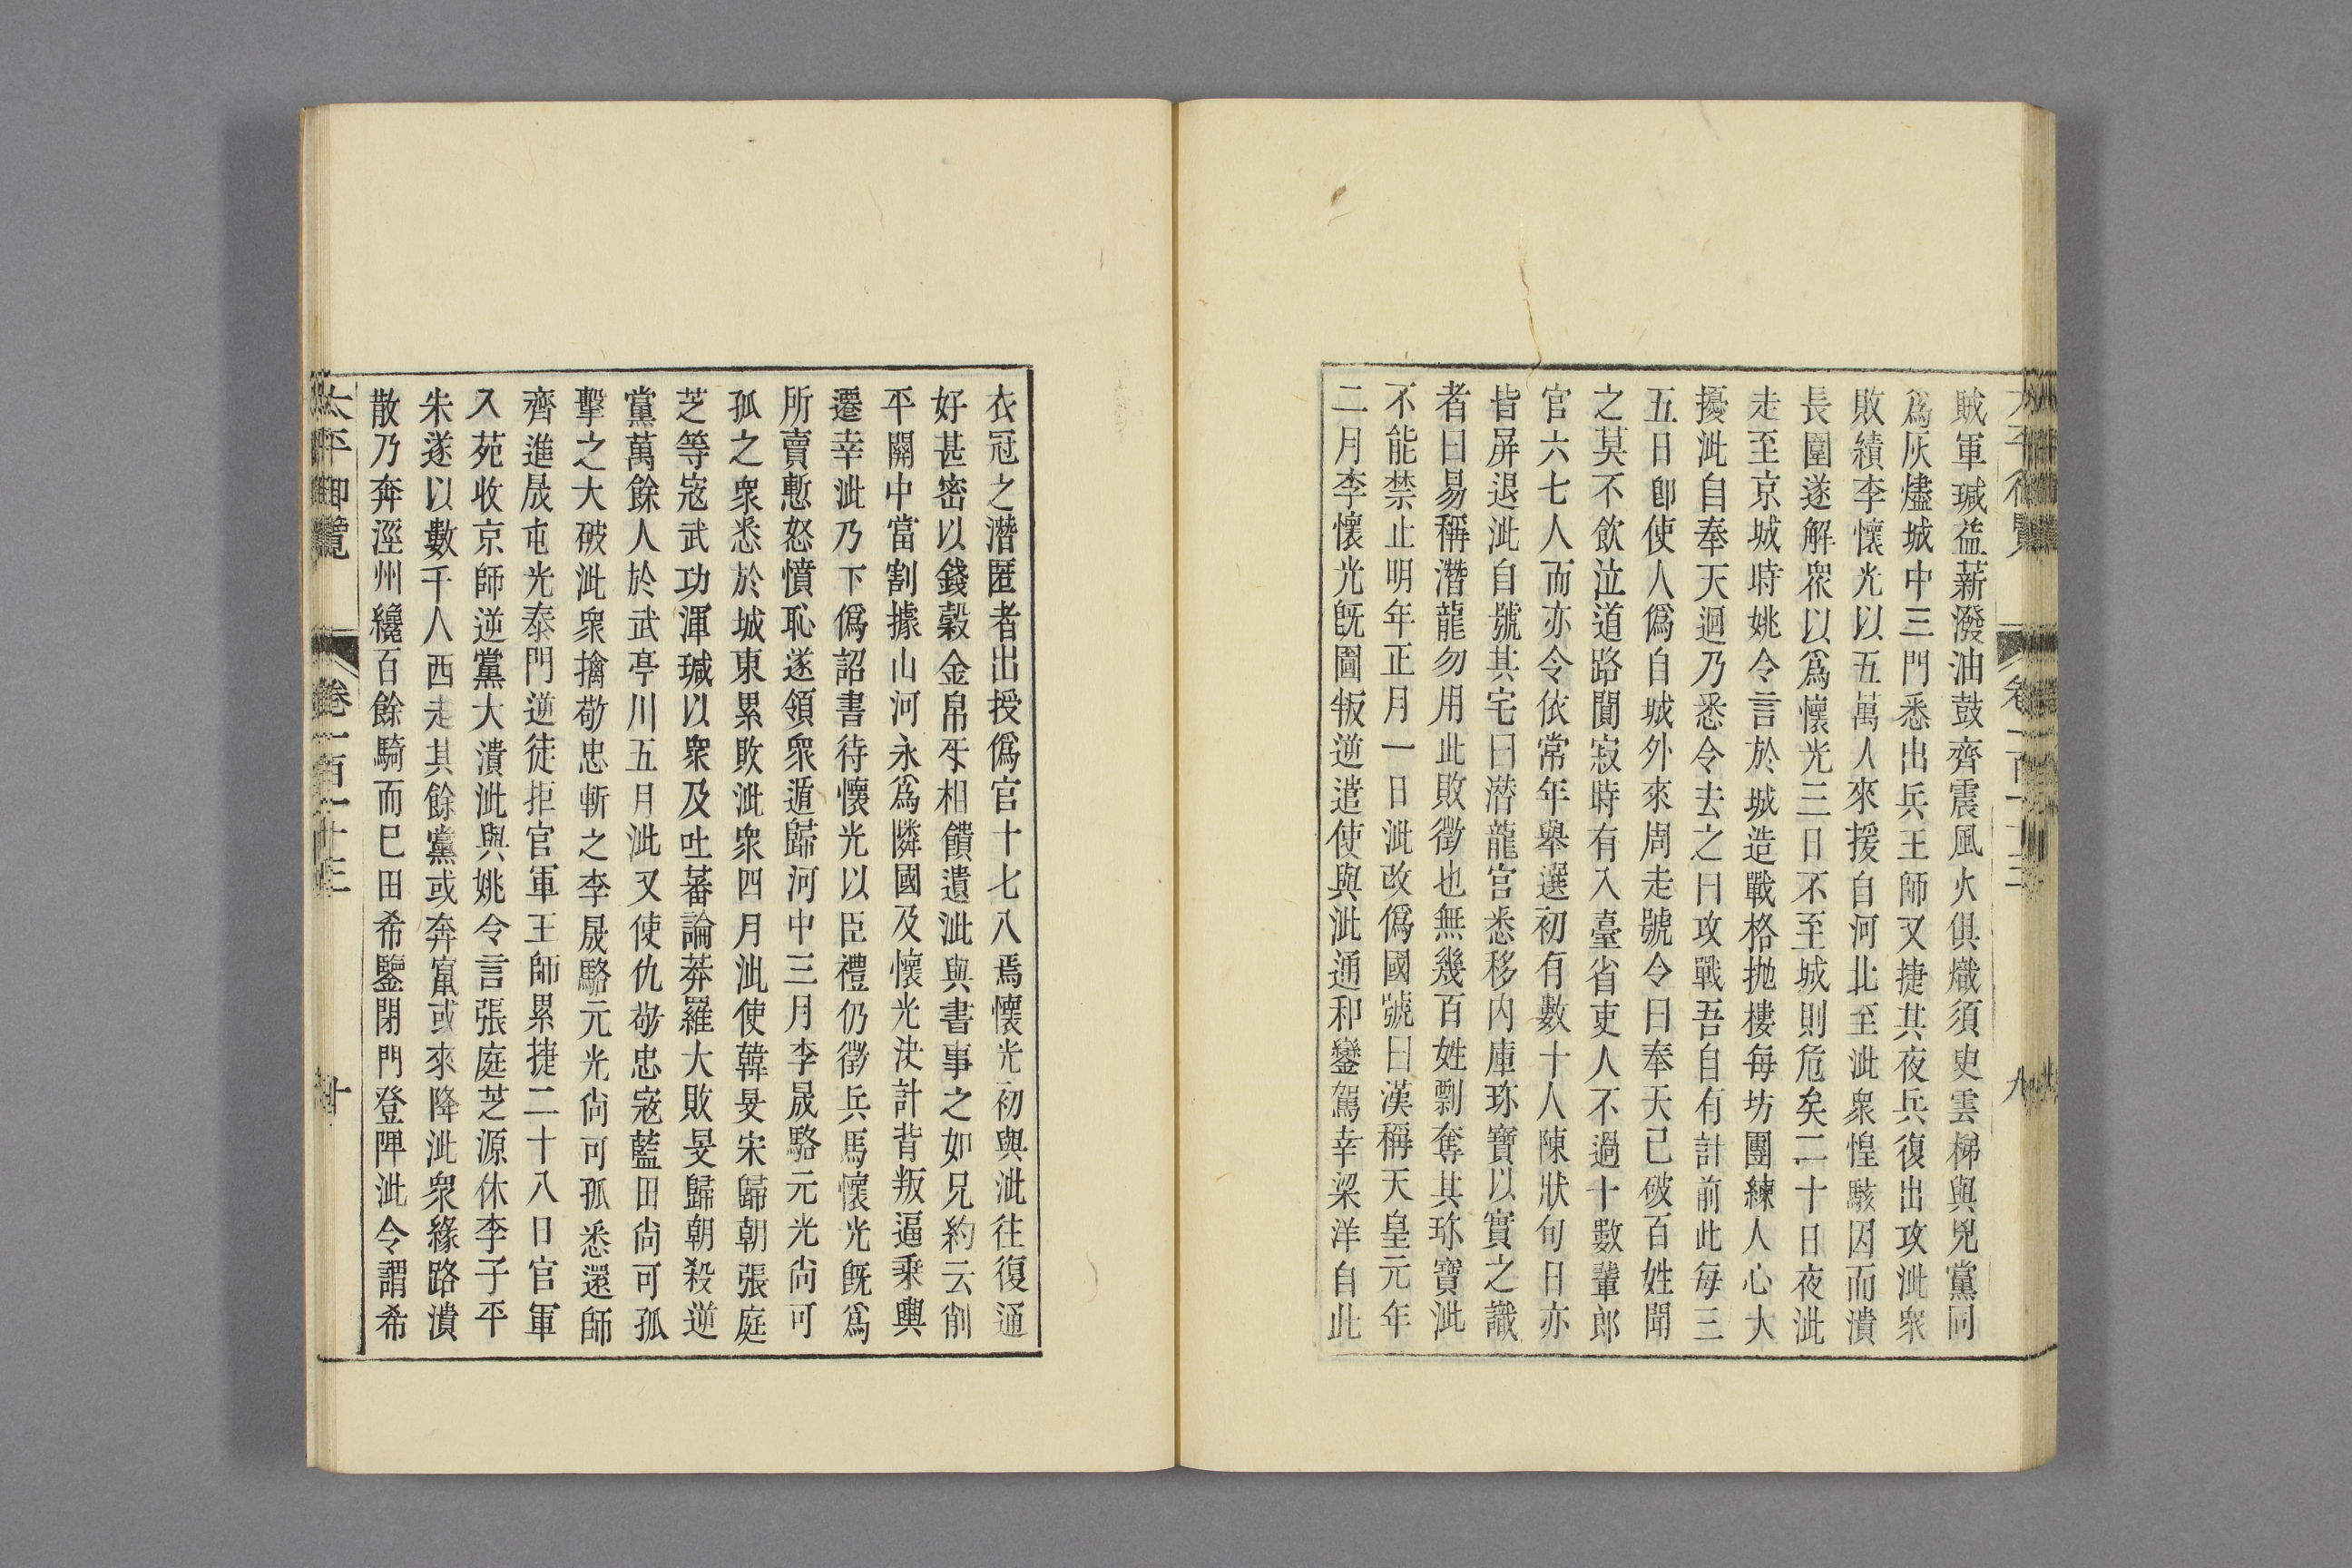 賊軍瑊益薪潑油鼓齊震風火俱熾須臾雲梯與兇黨同
爲灰燼城中三門悉出兵王師又捷其夜兵復出攻泚衆
敗績李懷光以五萬人來援自河北至泚衆惶駭因而潰
長圍遂解衆以爲懷光三日不至城則危矣二十日夜泚
走至京城時姚令言於城造戰格抛樓每坊團練人心大
擾泚自奉天迴乃悉令去之曰攻戰吾自有計前此每三
五日卽使人僞自城外來周走號令曰奉天已破百姓聞
之莫不飲泣道路闃寂時有入臺省吏人不過十數輩郎
官六七人而亦令依常年舉選初有數十人陳狀旬日亦
皆屏退泚自號其宅曰潛龍宮悉移內庫珎寶以實之識
者曰易稱潛龍勿用此敗徵也無幾百姓剽奪其珎寶泚
不能禁止明年正月一日泚改僞國號曰漢稱天皇元年
二月李懷光旣圖叛逆遣使與泚通和鑾駕幸梁洋自此
衣冠之潛匿者出授僞官十七八焉懷光初與泚往復通
好甚密以錢穀金帛牙相饋遺泚與書事之如兄約云削
平關中當割據山河永爲隣國及懷光決計背叛逼乗輿
遷幸泚乃下僞詔書待懷光以臣禮仍徵兵馬懷光旣爲
所賣慙怒憤恥遂領衆遁歸河中三月李晟駱元光尙可
孤之衆悉於城東累敗泚衆四月泚使韓旻宋歸朝張庭
芝等寇武功渾瑊以衆及吐蕃論莽羅大敗旻歸朝殺逆
黨萬餘人於武亭川五月泚又使仇敬忠寇藍田尙可孤
擊之大破泚衆擒敬忠斬之李晟駱元光尙可孤悉還師
齊進晟屯光泰門逆徒拒官軍王師累捷二十八日官軍
入苑收京師逆黨大潰泚與姚令言張庭芝源休李子平
朱遂以數千人西走其餘黨或奔竄或來降泚衆緣路潰
散乃奔涇州纔百餘騎而已田希鑒閉門登陴泚令謂希
太平御覽 卷一百一十三 十